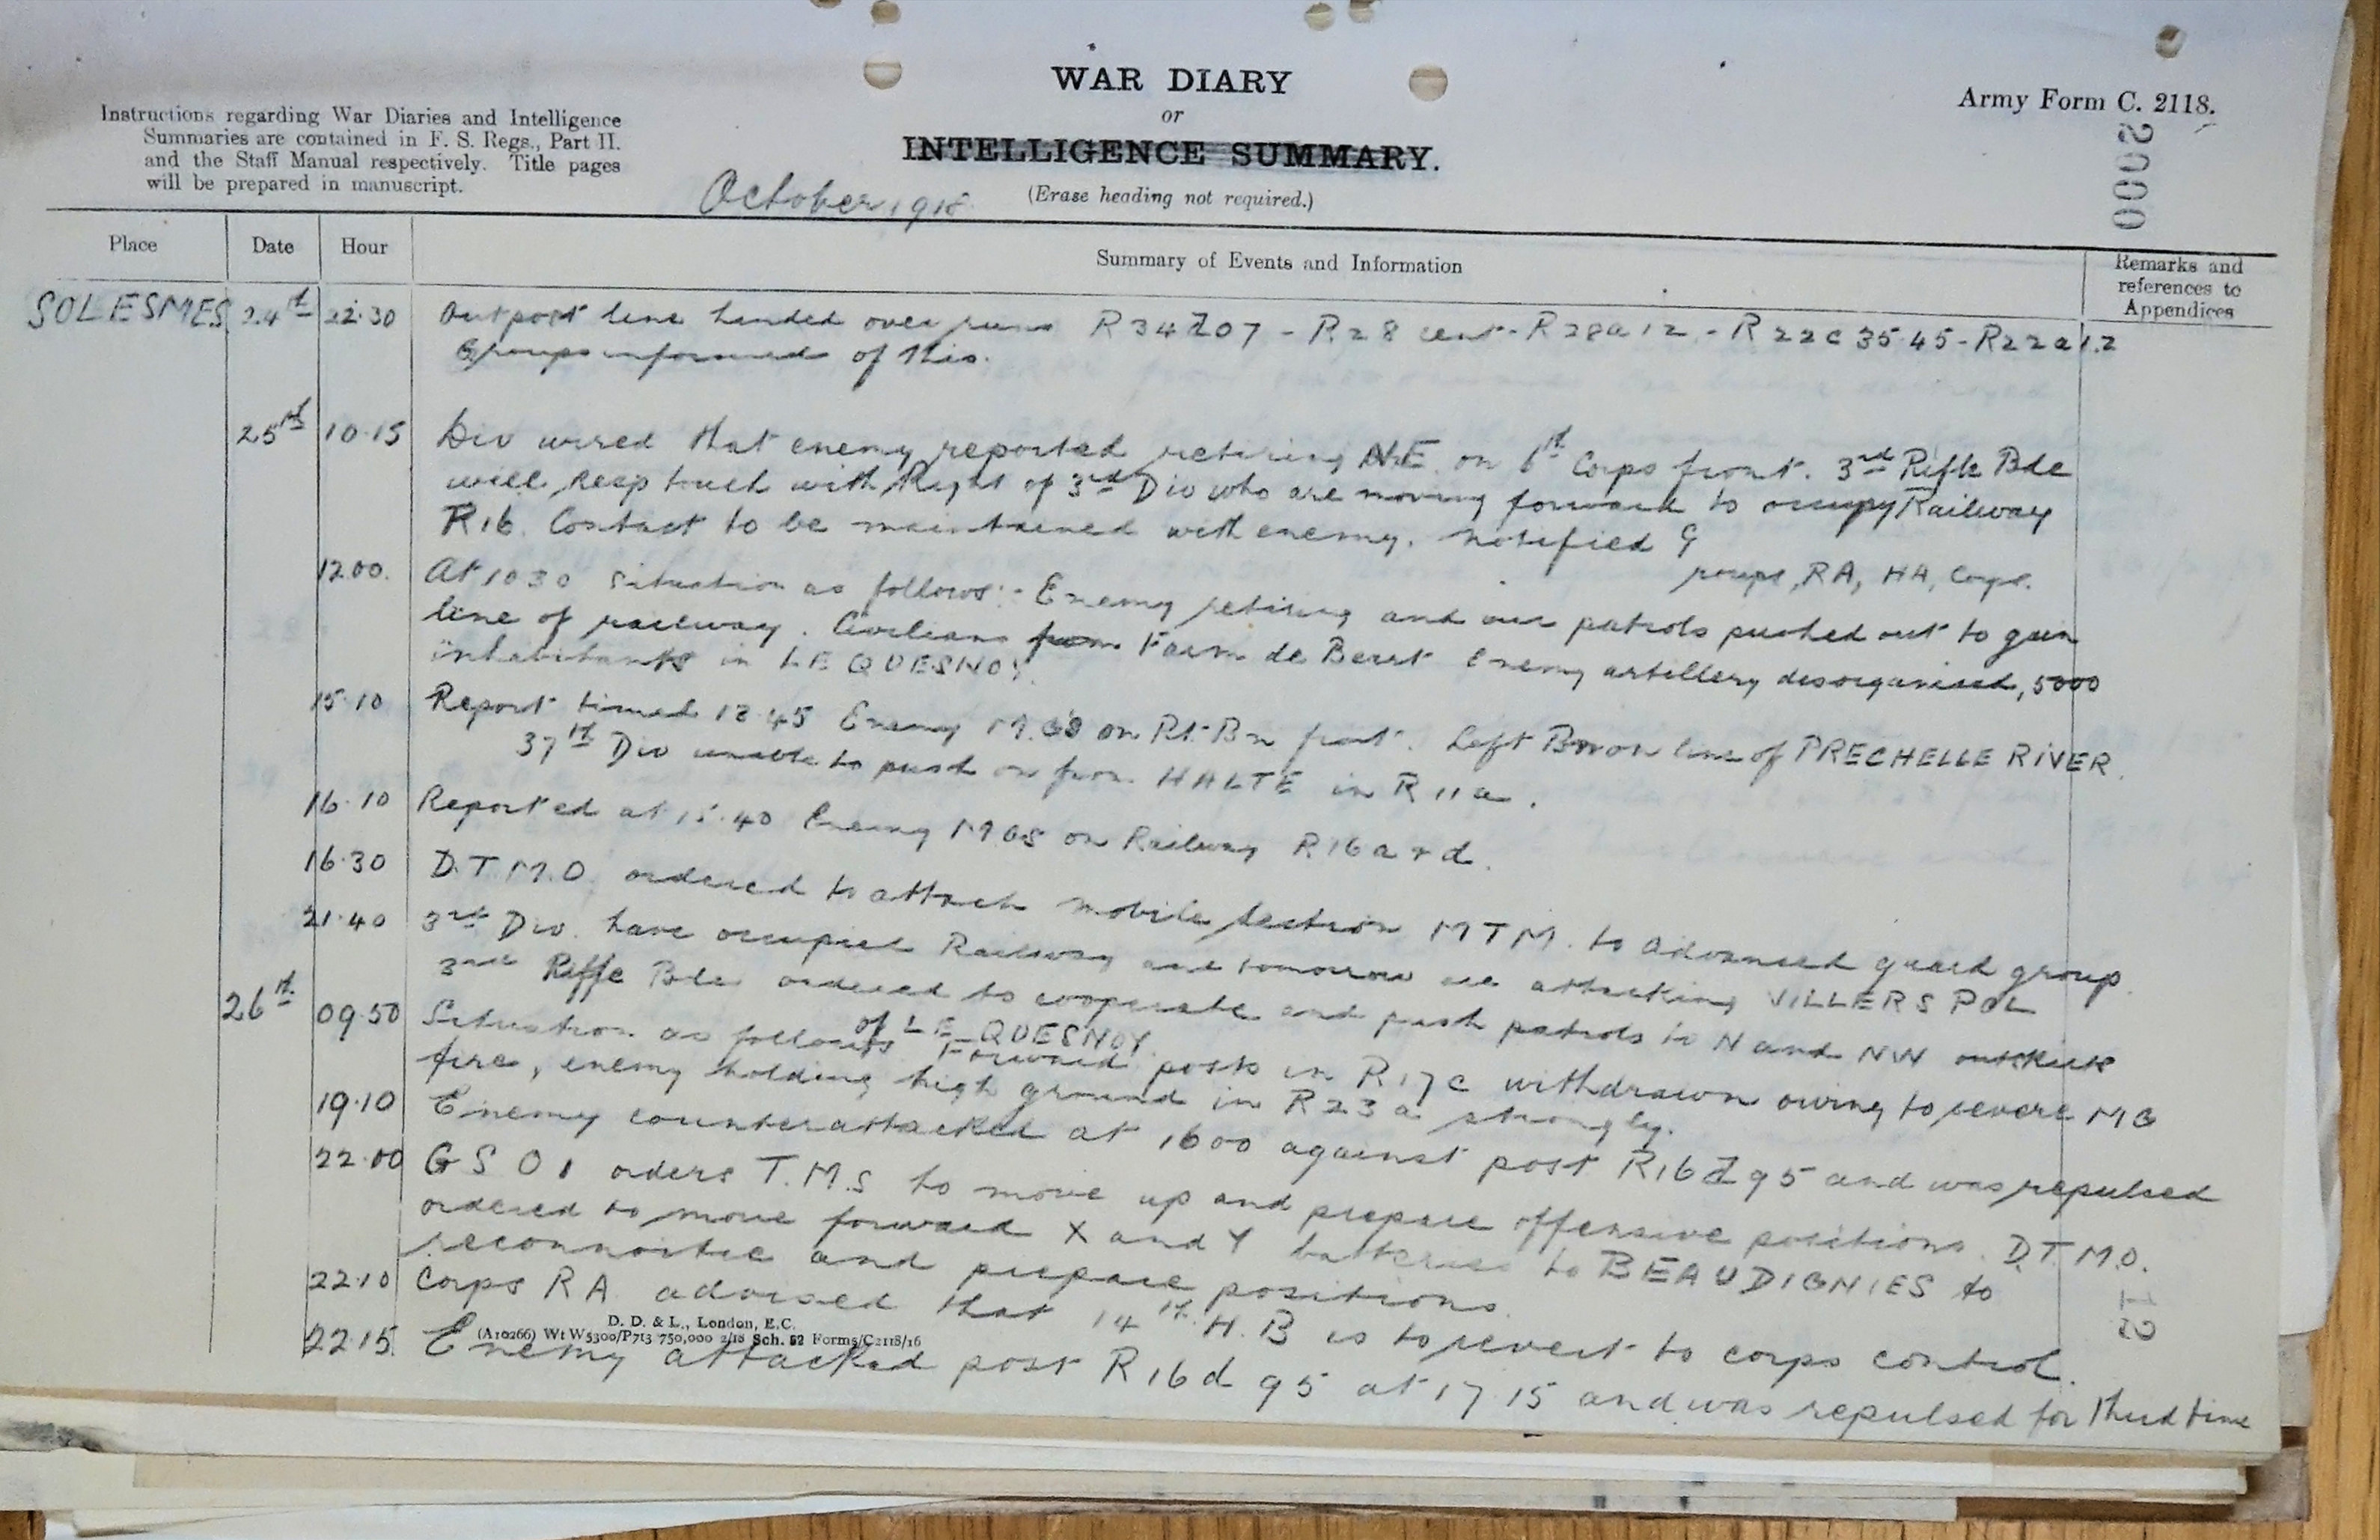 WAR DIARY
or
INTELLIGENCE SUMMARY.
(Erase heading not required.)
Army Form C. 2118.
Instructions regarding War Diaries and Intelligence
Summaries are contained in F. S. Regs., Part II.
and the Staff Manual respectively. Title pages
will be prepared in manuscript.
October 1918
2000
Place Date Hour Summary of Events and Information Remarks and references to Appendices
SOLESMES 24th 22.30 Outpost line handed over runs R34Z07 - R28 cent - R28a12 - R22c35.45 - R22a1.2
Groups informed of this.
25th 10.15 Div wired that enemy reported retiring NE on 6th Corps front. 3rd Rifle Bde
will keep touch with Right of 3rd Div who are moving forward to occupy Railway
R16. Contact to be maintained with enemy. Notified G
roups, RA, HA, Corps.
12.00. At 1030 situation as follows:- Enemy retiring and our patrols pushed out to gain
line of railway. Civilians from Farm de Beart Enemy artillery disorganised, 5000
inhabitants in LE QUESNOY.
15.10 Report timed 13.45 Enemy M.G's on Rt. Bn front. Left Bn on line of PRECHELLE RIVER.
37th Div unable to push on from HALTE in R11a.
16.10 Reported at 15.40 Enemy MGs on Railway R16a & d.
16.30 D.T.M.O. ordered to attach mobile section MTM. to advanced guard group.
21.40 3rd Div. have occupied Railway and tomorrow are attacking VILLERS POL
3rd Rifle Bde ordered to cooperate and push patrols to N and NW outskirts
of LE QUESNOY.
26th 09.50 Situation as follows Forward posts in R17c withdrawn owing to severe MG
fire, enemy holding high ground in R23a strongly.
19.10 Enemy counterattacked at 1600 against post R16Z95 and was repulsed
22.00 GSO1 orders T.M.S to move up and prepare offensive positions. D.T.M.O.
ordered to move forward X and Y batteries to BEAUDIGNIES to
reconnoitre and prepare positions.
22.10 Corps RA advised that 14th H.B is to revert to corps control.
D. D. & L., London, E.C.
(A10266) Wt W5300/P713 750,000 2/18 Sch. 52 Forms/C2118/16
22.15. Enemy attacked post R16d 95 at 17.15 and was repulsed for third time
12